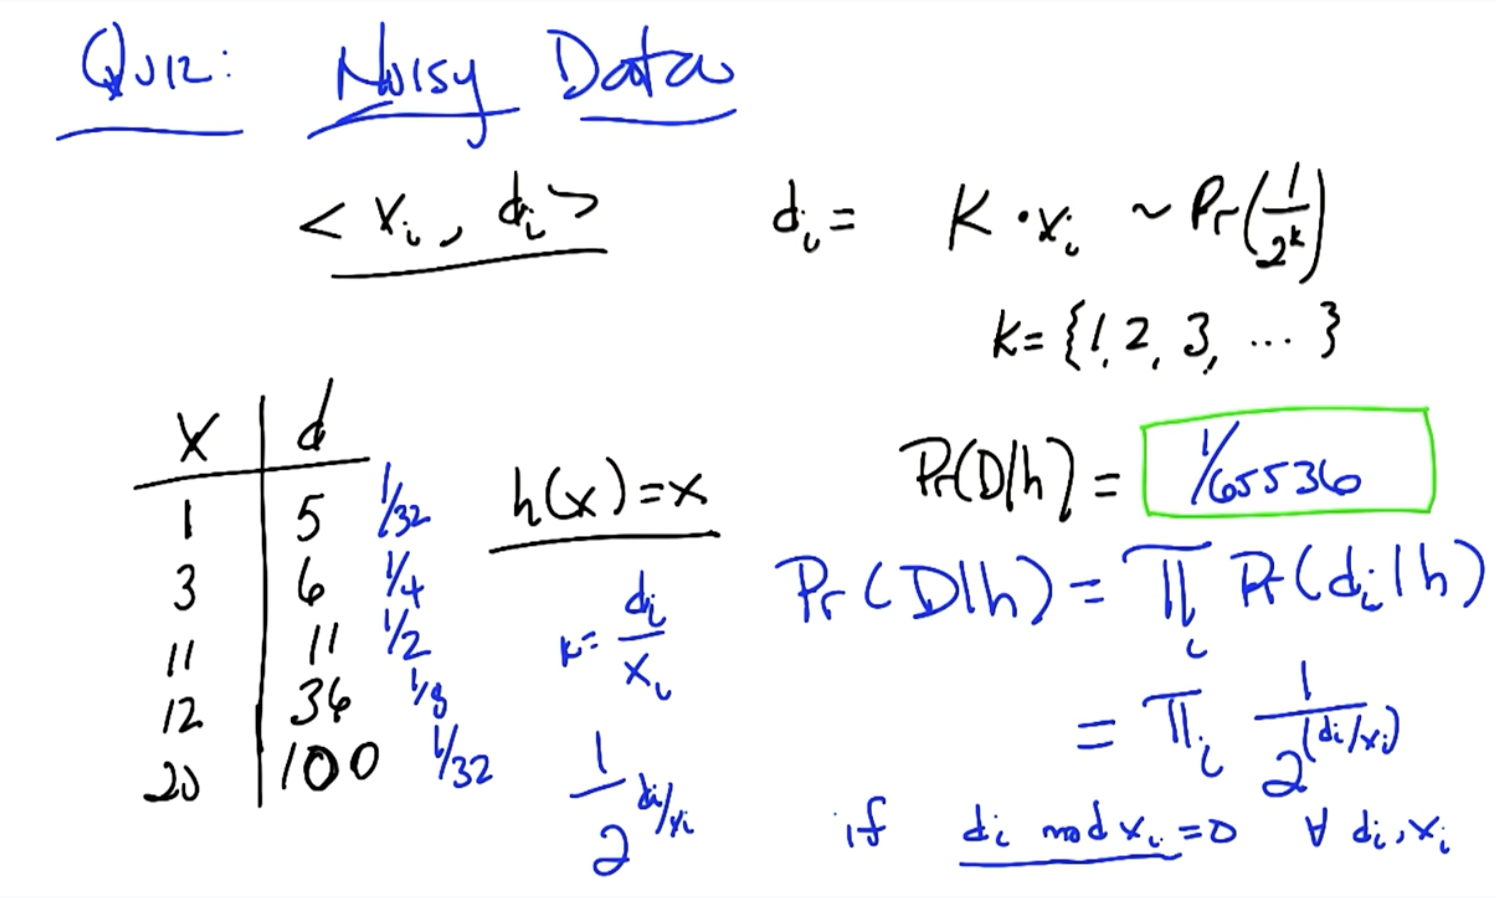 Quiz: Noisy Data
< xᵢ, dᵢ >   dᵢ = k · xᵢ ~ Pr(1/2ᵏ)
k = {1, 2, 3, ... }
x | d
1 | 5 1/32
3 | 6 1/4
11 | 11 1/2
12 | 36 1/8
20 | 100 1/32
h(x) = x
k = dᵢ/xᵢ
1/2^(dᵢ/xᵢ)
Pr(D|h) = 1/65536
Pr(D|h) = πᵢ Pr(dᵢ|h)
= πᵢ 1/2^(dᵢ/xᵢ)
if dᵢ mod xᵢ = 0 ∀ dᵢ, xᵢ